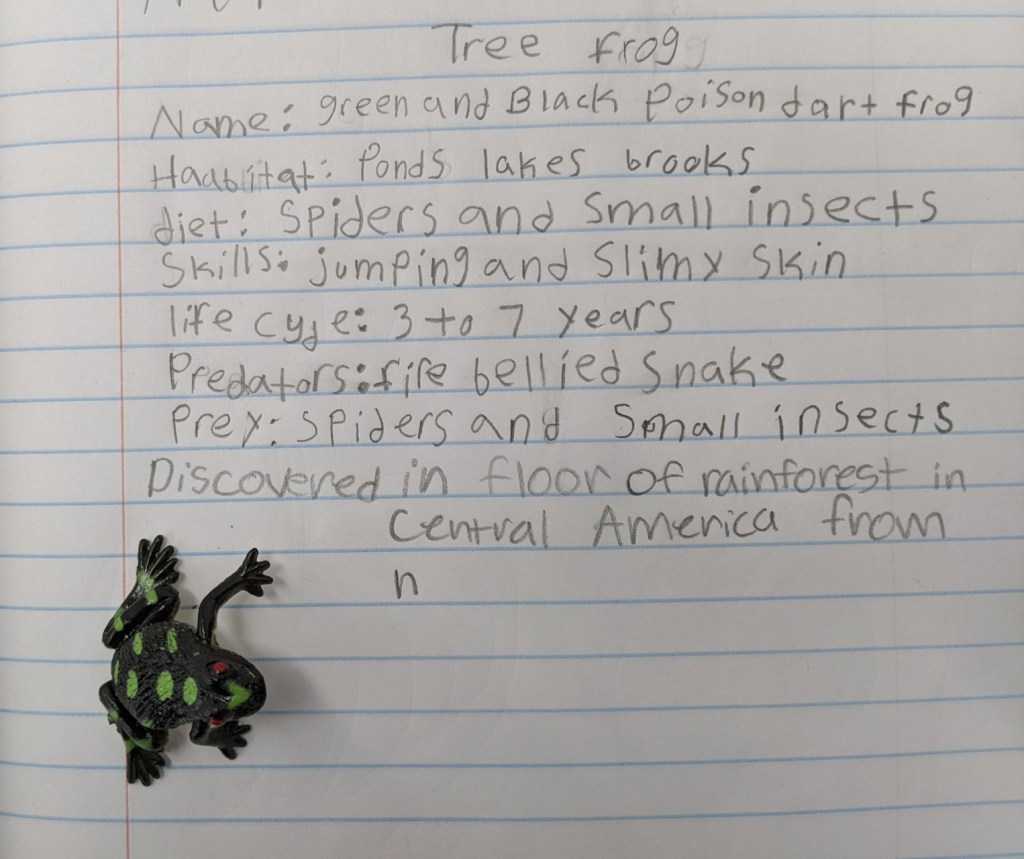 Tree frog
Name: green and Black Poison dart frog
Haabitat: Ponds lakes brooks
diet: Spiders and small insects
Skills: jumping and Slimy skin
life cyle: 3 to 7 years
Predators: fire bellied snake
Prey: Spiders and Small insects
Discovered in floor of rainforest in
Central America from
n